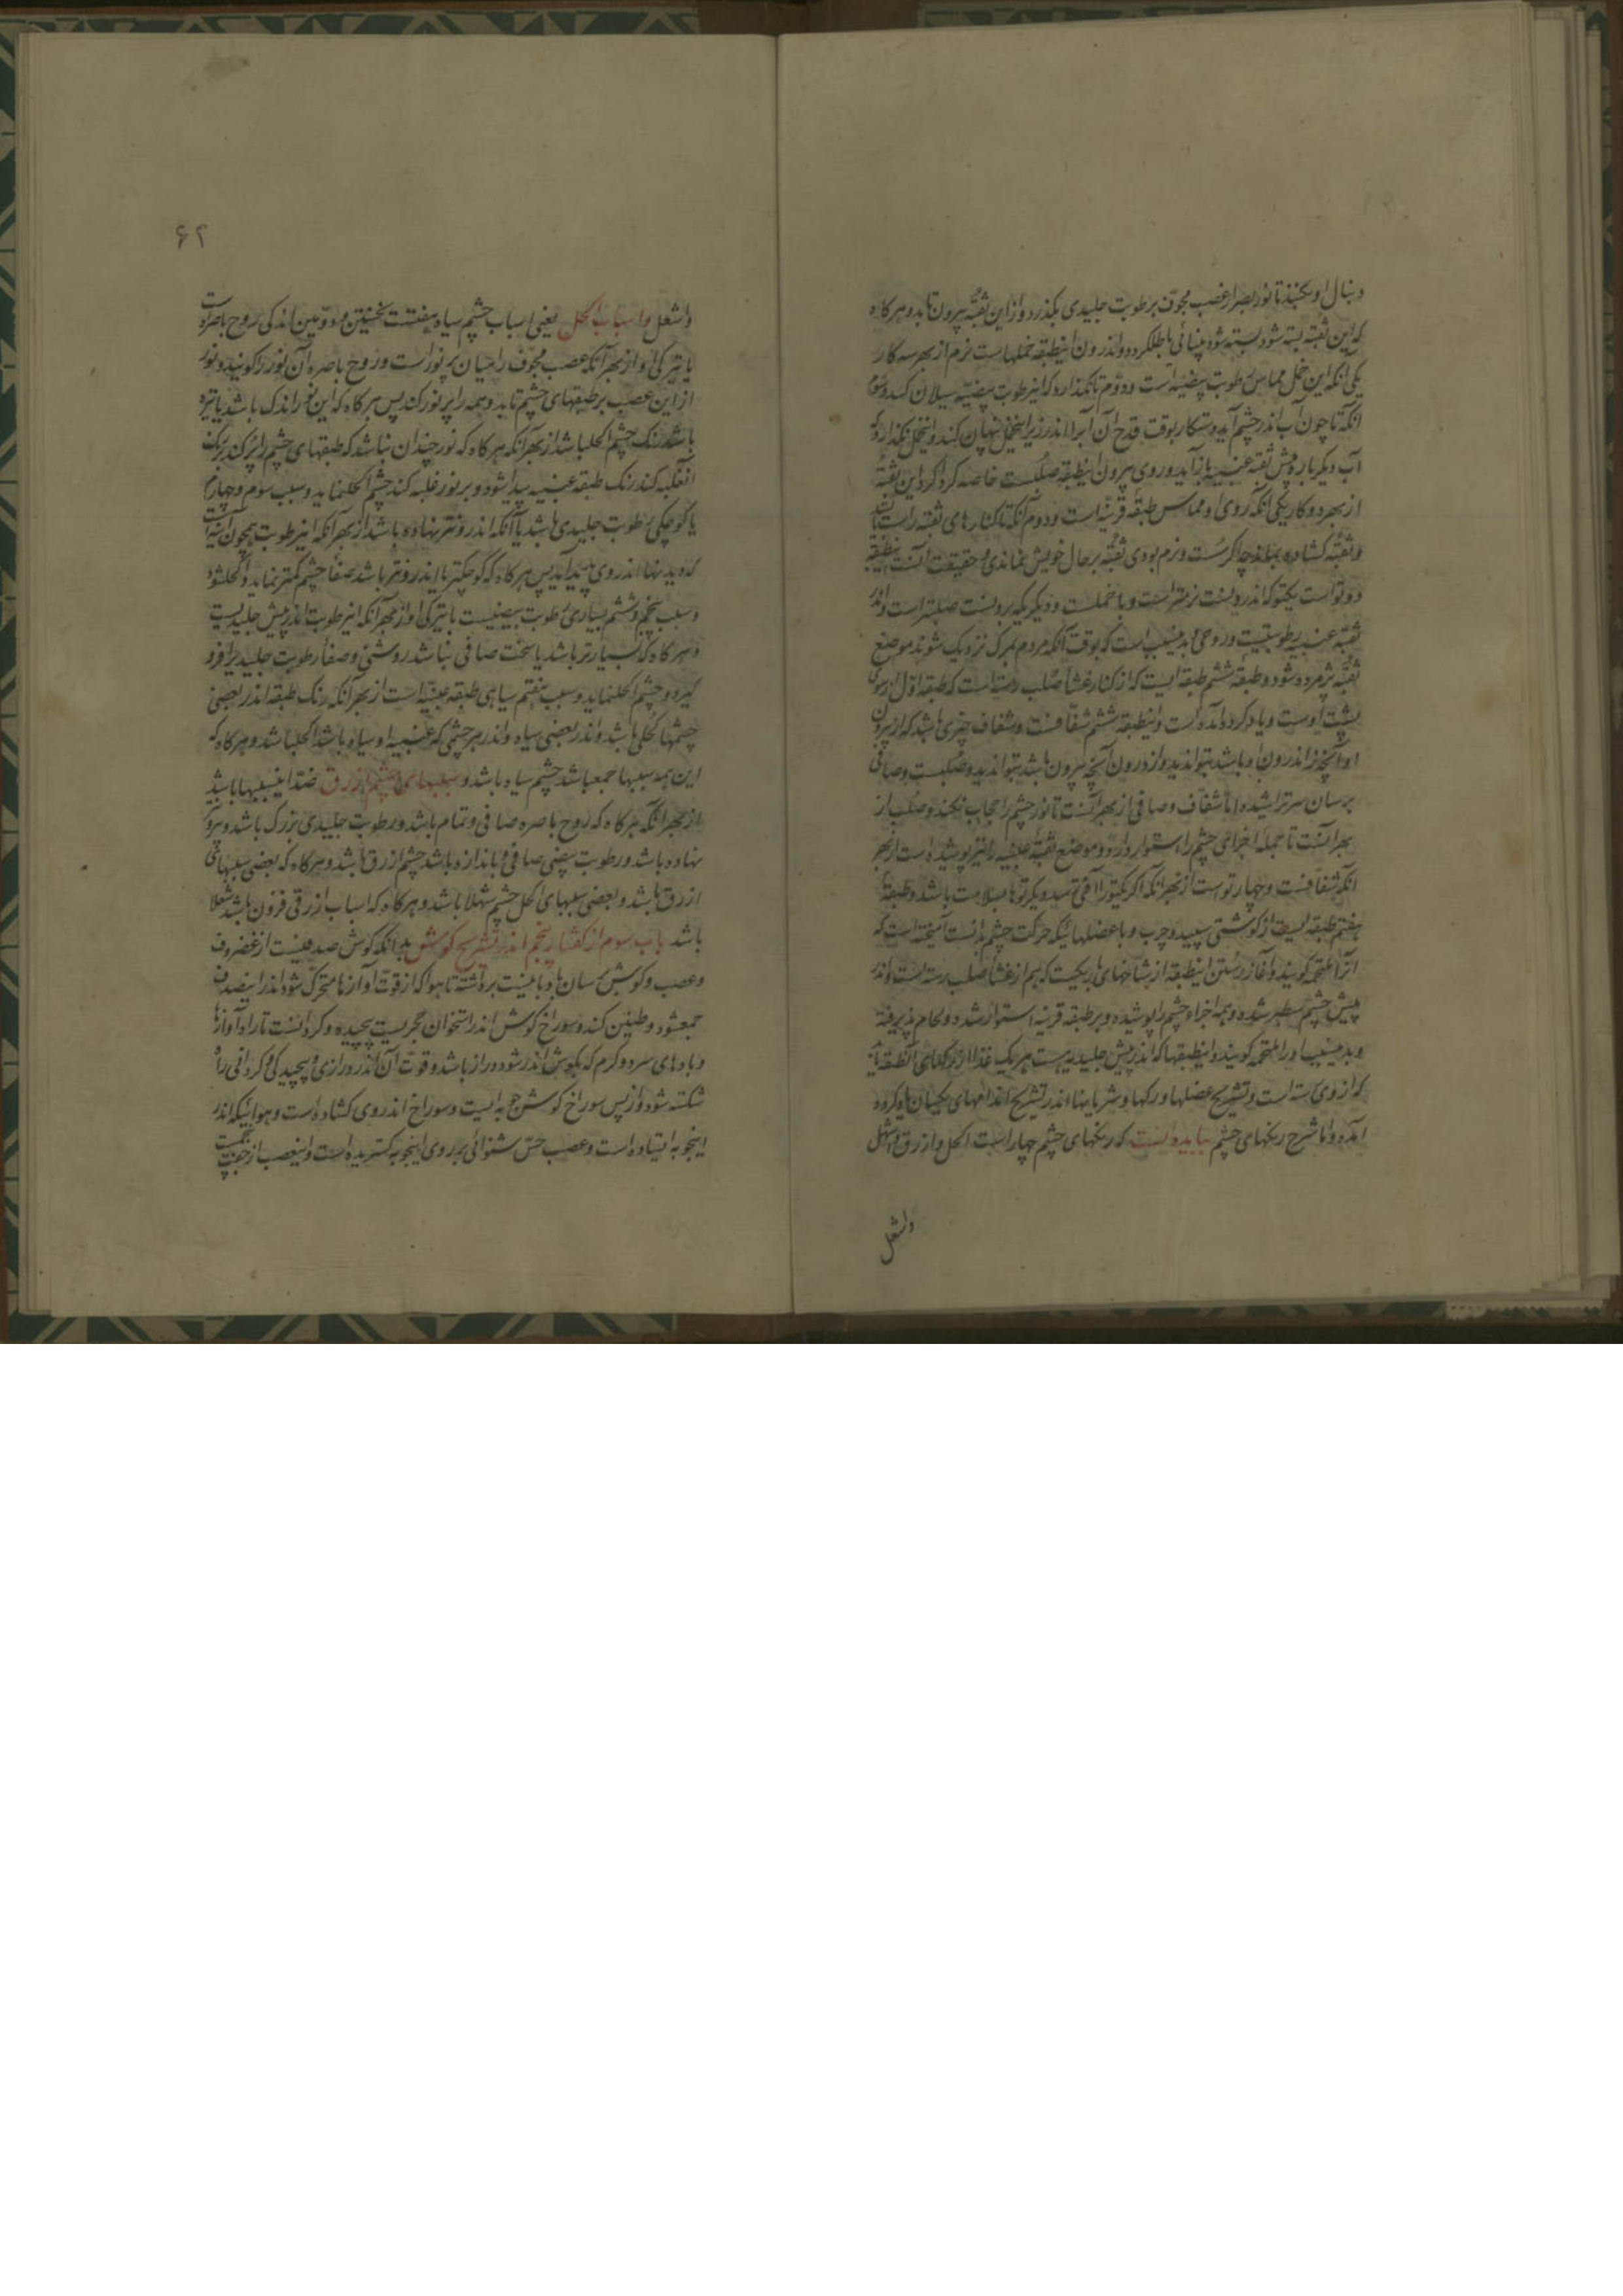 دنبال او بکنجد تا نور بصر از عصب مجوّف بر طوبت جلیدی بکذرد و از این ثقبه بیرون تابد و هرکاه
که این ثقبه بسته شود بسته شود بینائی باطل کردد و اندرون اینطبقه خملهاست نرم از بهر سه کار
یکی انکه این خمل مماس رطوبت بیضیه است و دوّم تا نکذارد که اینرطوبت بیضیه سیلان کند و سوم
انکه تا چون آب اندر چشم آید و ستکار بوقت قدح آن آبرا اندر زیر اینخمل پنهان کند و اینخمل نکذارد که
آب دیکر باره پیش ثقبه عنبیه باز آید و روی بیرون اینطبقه صلبست خاصه کرداکرد این ثقبه
از بهر دو کار یکی انکه روی او مماس طبقه قرنیه است و دوم آنکه تا کنارهای ثقبه راست باشد
و ثقبه کشاده بماند چه اکر سُست و نرم بودی ثقبه بر حال خویش نماندی و حقیقت آنست که اینطبقه
دو تو است یکتو که اندرونست نرمتر است و با خملست و دیکر که برونست صلبتر است و اندر
ثقبه عنبیه رطوبتیست و روحی و بدینسبب است که بوقت آنکه مردم بمرک نزدیک شوند موضع
ثقبه پژمرده شود و طبقه ششم طبقه ایست که از کنار غشاء صلب رسته است که طبقه اوّل از سوی
پشت اوست و یاد کرده آمده است و اینطبقه ششم شفافست و شفاف چیزی باشد که از بیرون
او آنچه اندرون او باشد بتواند دید و از درون آنچه بیرون باشد بتواند دید و صُلبست و صافی
بر سان سر تراشیده امّا شفّاف و صافی از بهر آنست تا نور چشم را حجاب نکند و صُلب از
بهر آنست تا جمله اجزای چشم را استوار دارد و موضع ثقبه عنبیه را نیز پوشیده است از بهر
انکه شفافست و چهار تو است از بهر انکه اکر یکتو را آفتی رسد دیکر تو ها بسلامت باشد و طبقه
هفتم طبقه ایست از کوشتی سپید و چرب و با عضلهائیکه حرکت چشم بدانست آمیخته است که
انرا ملتحمه کویند و آغاز رُستن اینطبقه از شاخهای باریکست که هم از غشاء صلب رسته است و اندر
پیش چشم سطبر شده و همه اجزاء چشم را پوشیده و بر طبقه قرنیه استوار شده و لحام پذیرفته
و بدینسبب او را ملتحمه کویند و اینطبقها که اندر پیش جلیدیه است هر یک غذا از رکهای آنطبقه یابد
که از وی رسته است و تشریح عضلها و رکها و شریانها اندر تشریح اندامهای یکسان یاد کرده
آمده و امّا شرح رنکهای چشم بباید دانست که رنکهای چشم چهار است اکحل و ازرق و اشهل
واشعل
۶۲
واشعل و اسباب اکحل یعنی اسباب چشم سیاه هفتست نخستین و دوّمین اندکی روح باصره است
یا تیرکی او از بهر آنکه عصب مجوّف را میان پر نور است و روح باصره آن نور را کویند و نور
از این عصب بر طبقهای چشم تابد و همه را پر نور کند پس هرکاه که این نور اندک باشد یا تیره
باشد رنک چشم اکحل باشد از بهر آنکه هرکاه که نور چندان نباشد که طبقهای چشم را پر کند
غلبه کند رنک طبقه عنبیه پیدا شود و بر نور غلبه کند چشم اکحل نماید و سبب سوم و چهارم
یا کوچکی رطوبت جلیدی باشد یا آنکه اندرونتر نهاده باشد از بهر آنکه اینرطوبت همچون آینه است
که دیدنها اندر وی پدید آید پس هرکاه که کوچکتر یا اندرونتر باشد صفاء چشم کمتر نماید و اکحل شود
و سبب پنجم و ششم بسیاری رطوبت بیضیست یا تیرکی او از بهر آنکه اینرطوبت اندر پیش جلیدیست
و هرکاه که بسیارتر باشد یا سخت صافی نباشد روشنی و صفاء رطوبت جلیدیرا فرو
کیرد و چشم اکحل نماید و سبب هفتم سیاهی طبقه عنبیّه است از بهر آنکه رنک طبقه اندر بعضی
چشمها کُحلی باشد و اندر بعضی سیاه و اندر هر چشمی که عنبیه او سیاه باشد اکحل باشد و هرکاه که
این همه سببها جمع باشد چشم سیاه باشد و سببهای چشم ازرق ضد اینسببها باشد
از بهر انکه هرکاه که روح باصره صافی و تمام باشد و رطوبت جلیدی بزرک باشد و بیرونتر
نهاده باشد و رطوبت بیضی صافی و باندازه باشد چشم ازرق باشد و هرکاه که بعضی سببهای
ازرق باشد و بعضی سببهای اکحل چشم شهلا باشد و هرکاه که اسباب ازرقی فزون باشد شعلا
باشد باب سوم از کفتار پنجم اندر تشریح کوش بدانکه کوش صدفیست از غضروف
و عصب و کوش بسان بادبانیست برداشته تا هوا که از قوّت آوازها متحرّک شود اندر اینصدف
جمع شود و طنین کند و سوراخ کوش اندر استخوان حجریست پیچیده و کردانست تا راه آوازها
و بادهای سرد و کرم که بکوش اندر شود دراز باشد و قوّت آن اندر درازی و پیچیدکی و کردانی راه
شکسته شود و از پس سوراخ کوش جوبه ایست و سوراخ اندر وی کشاده است و هوائیکه اندر
اینجوبه ایستاده است و عصب حسّ شنوائی بر روی اینجوبه کستریده است و اینعصب از جفت پنجمست